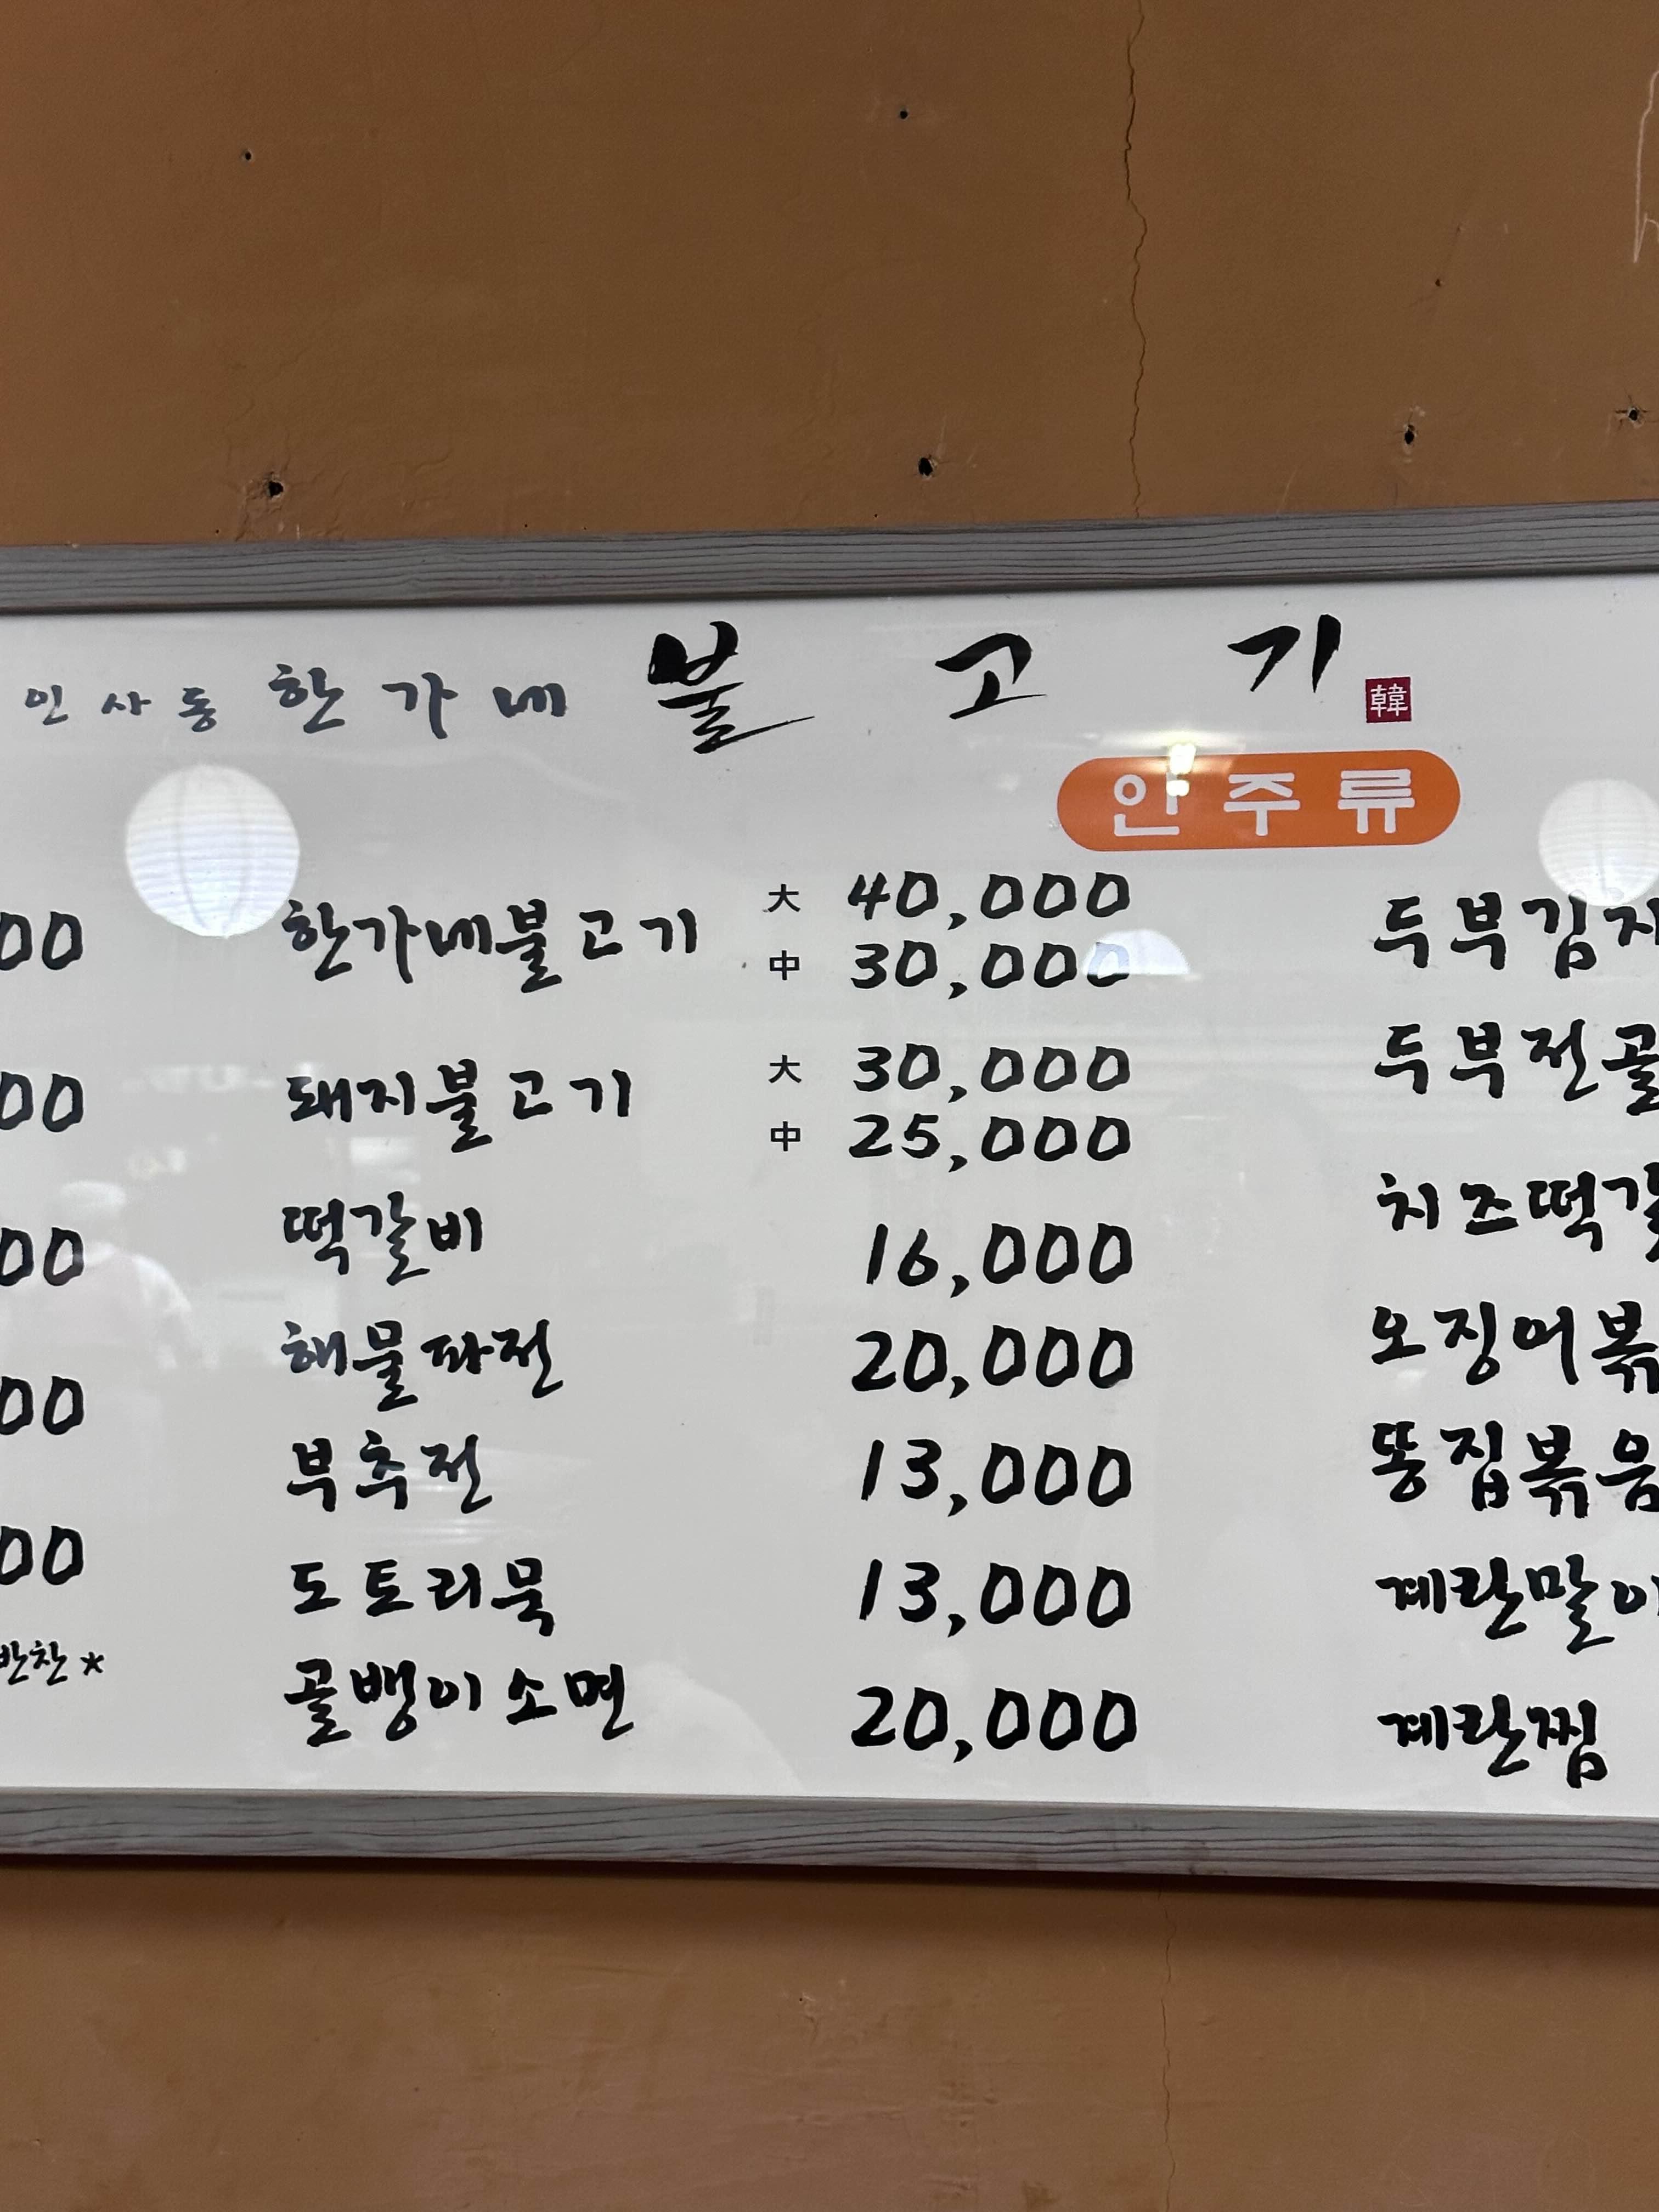 인사동 한가네 불고기 韓
안주류
00
한가네불고기 大 40,000
中 30,000
두부김
00
돼지불고기 大 30,000
中 25,000
두부전골
떡갈비 16,000
치즈떡갈
00
해물파전 20,000
오징어볶
00
부추전 13,000
똥집볶음
00
도토리묵 13,000
계란말이
반찬*
골뱅이소면 20,000
계란찜